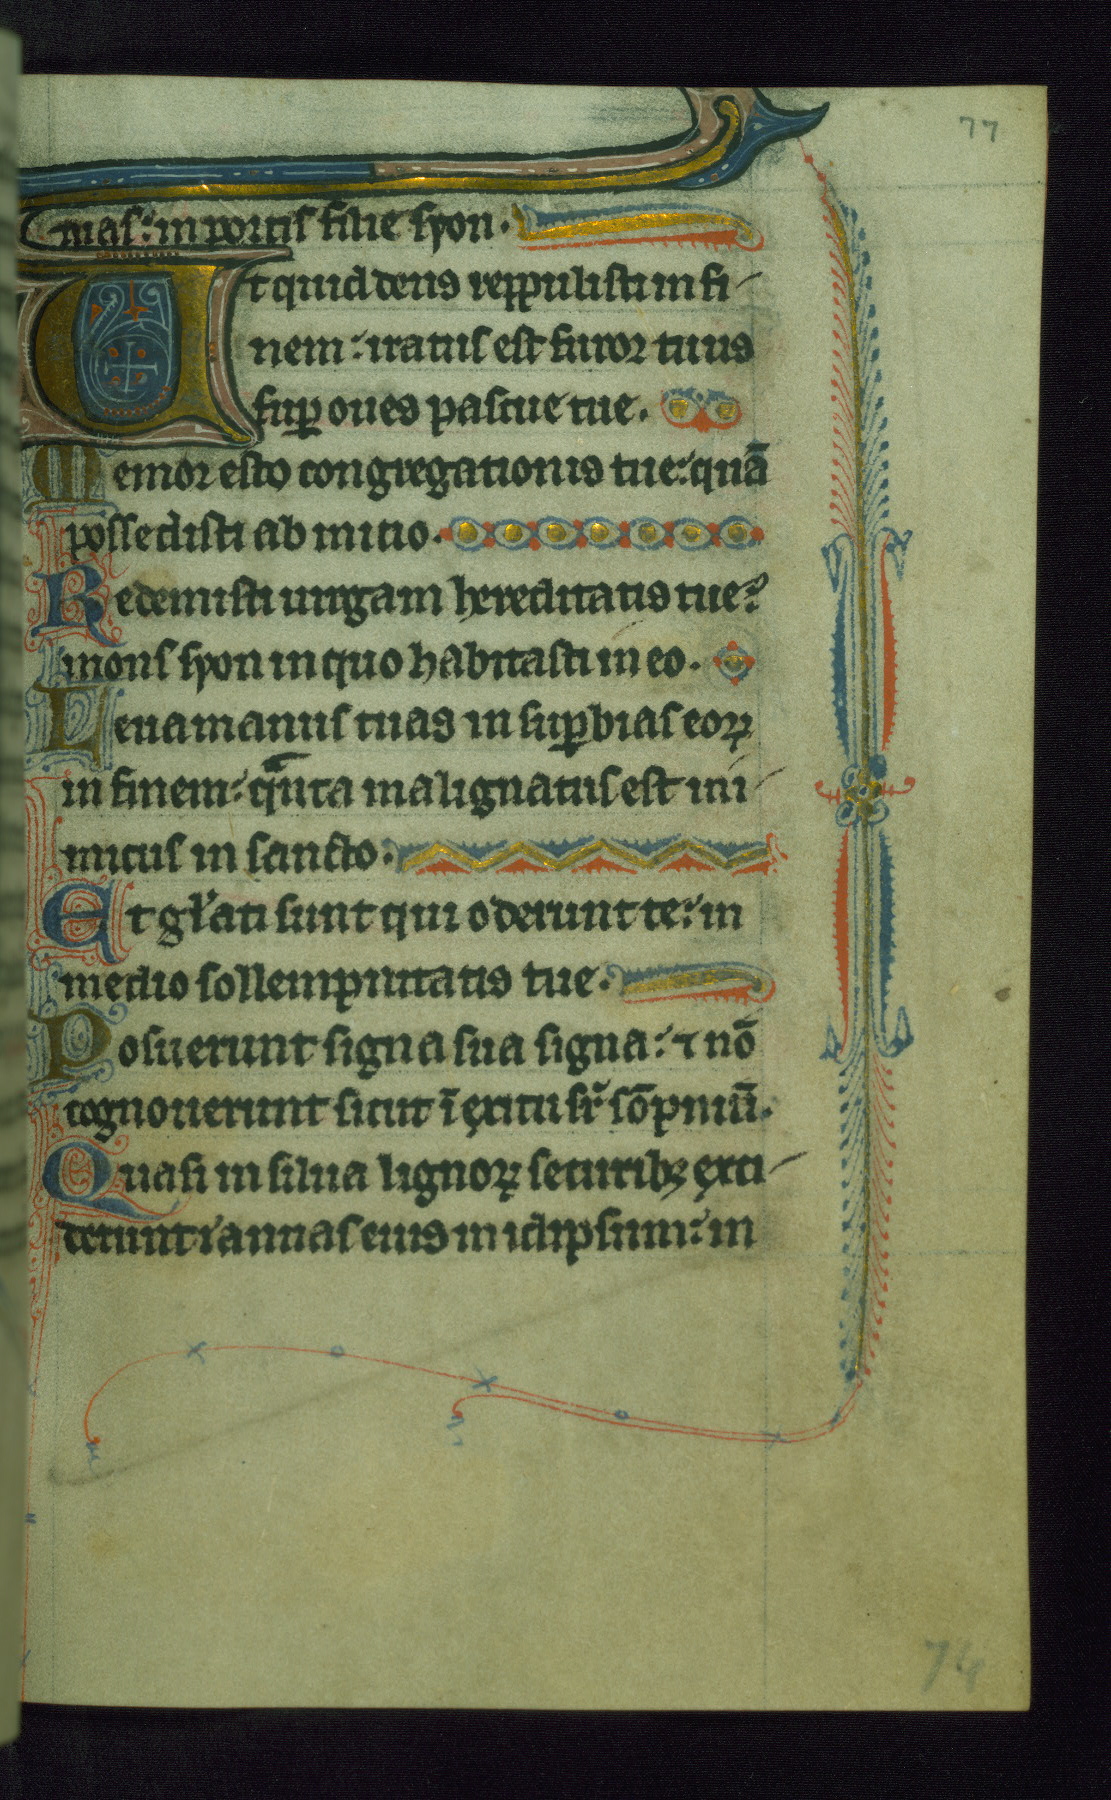 77
nas: in portis filie syon.
Ut quid deus reppulisti in fi
nem: iratus est furor tuus
sup oues pascue tue.
Memor esto congregationis tue: quā
possedisti ab initio.
Redemisti uirgam hereditatis tue:
mons syon in quo habitasti in eo.
Leua manus tuas in supbias eoꝝ
in finem: qūta malignatus est ini
micus in sancto.
Et gl'ati sunt qui oderunt te: in
medio sollempnitatis tue.
Posuerunt signa sua signa: ⁊ nō
cognouerunt sicut ī exitu sr̄ sōpniū.
Quasi in silua lignoꝝ securibꝫ exci
derunt ianuas eius in idipsum: in
74